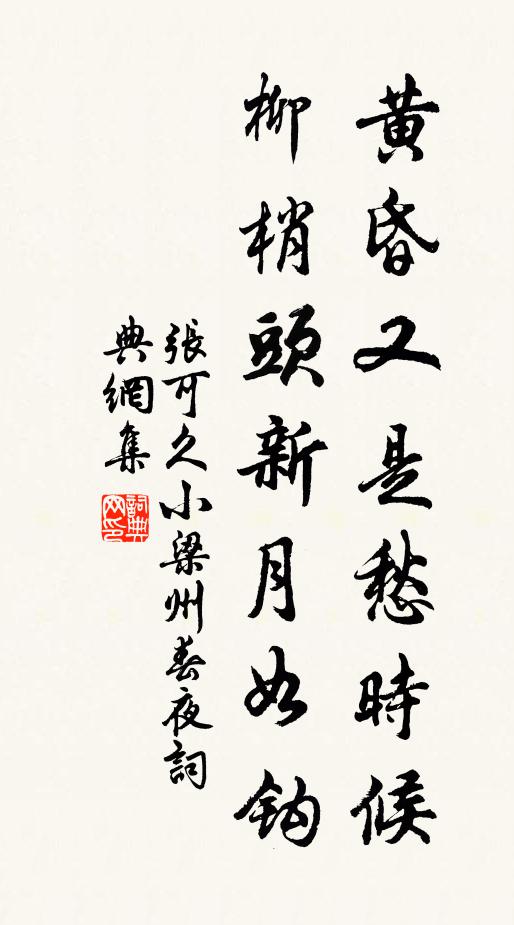 黃昏又是愁時候
柳梢頭新月如鈎
張可久小梁州春夜詞
典網集
詞典網印